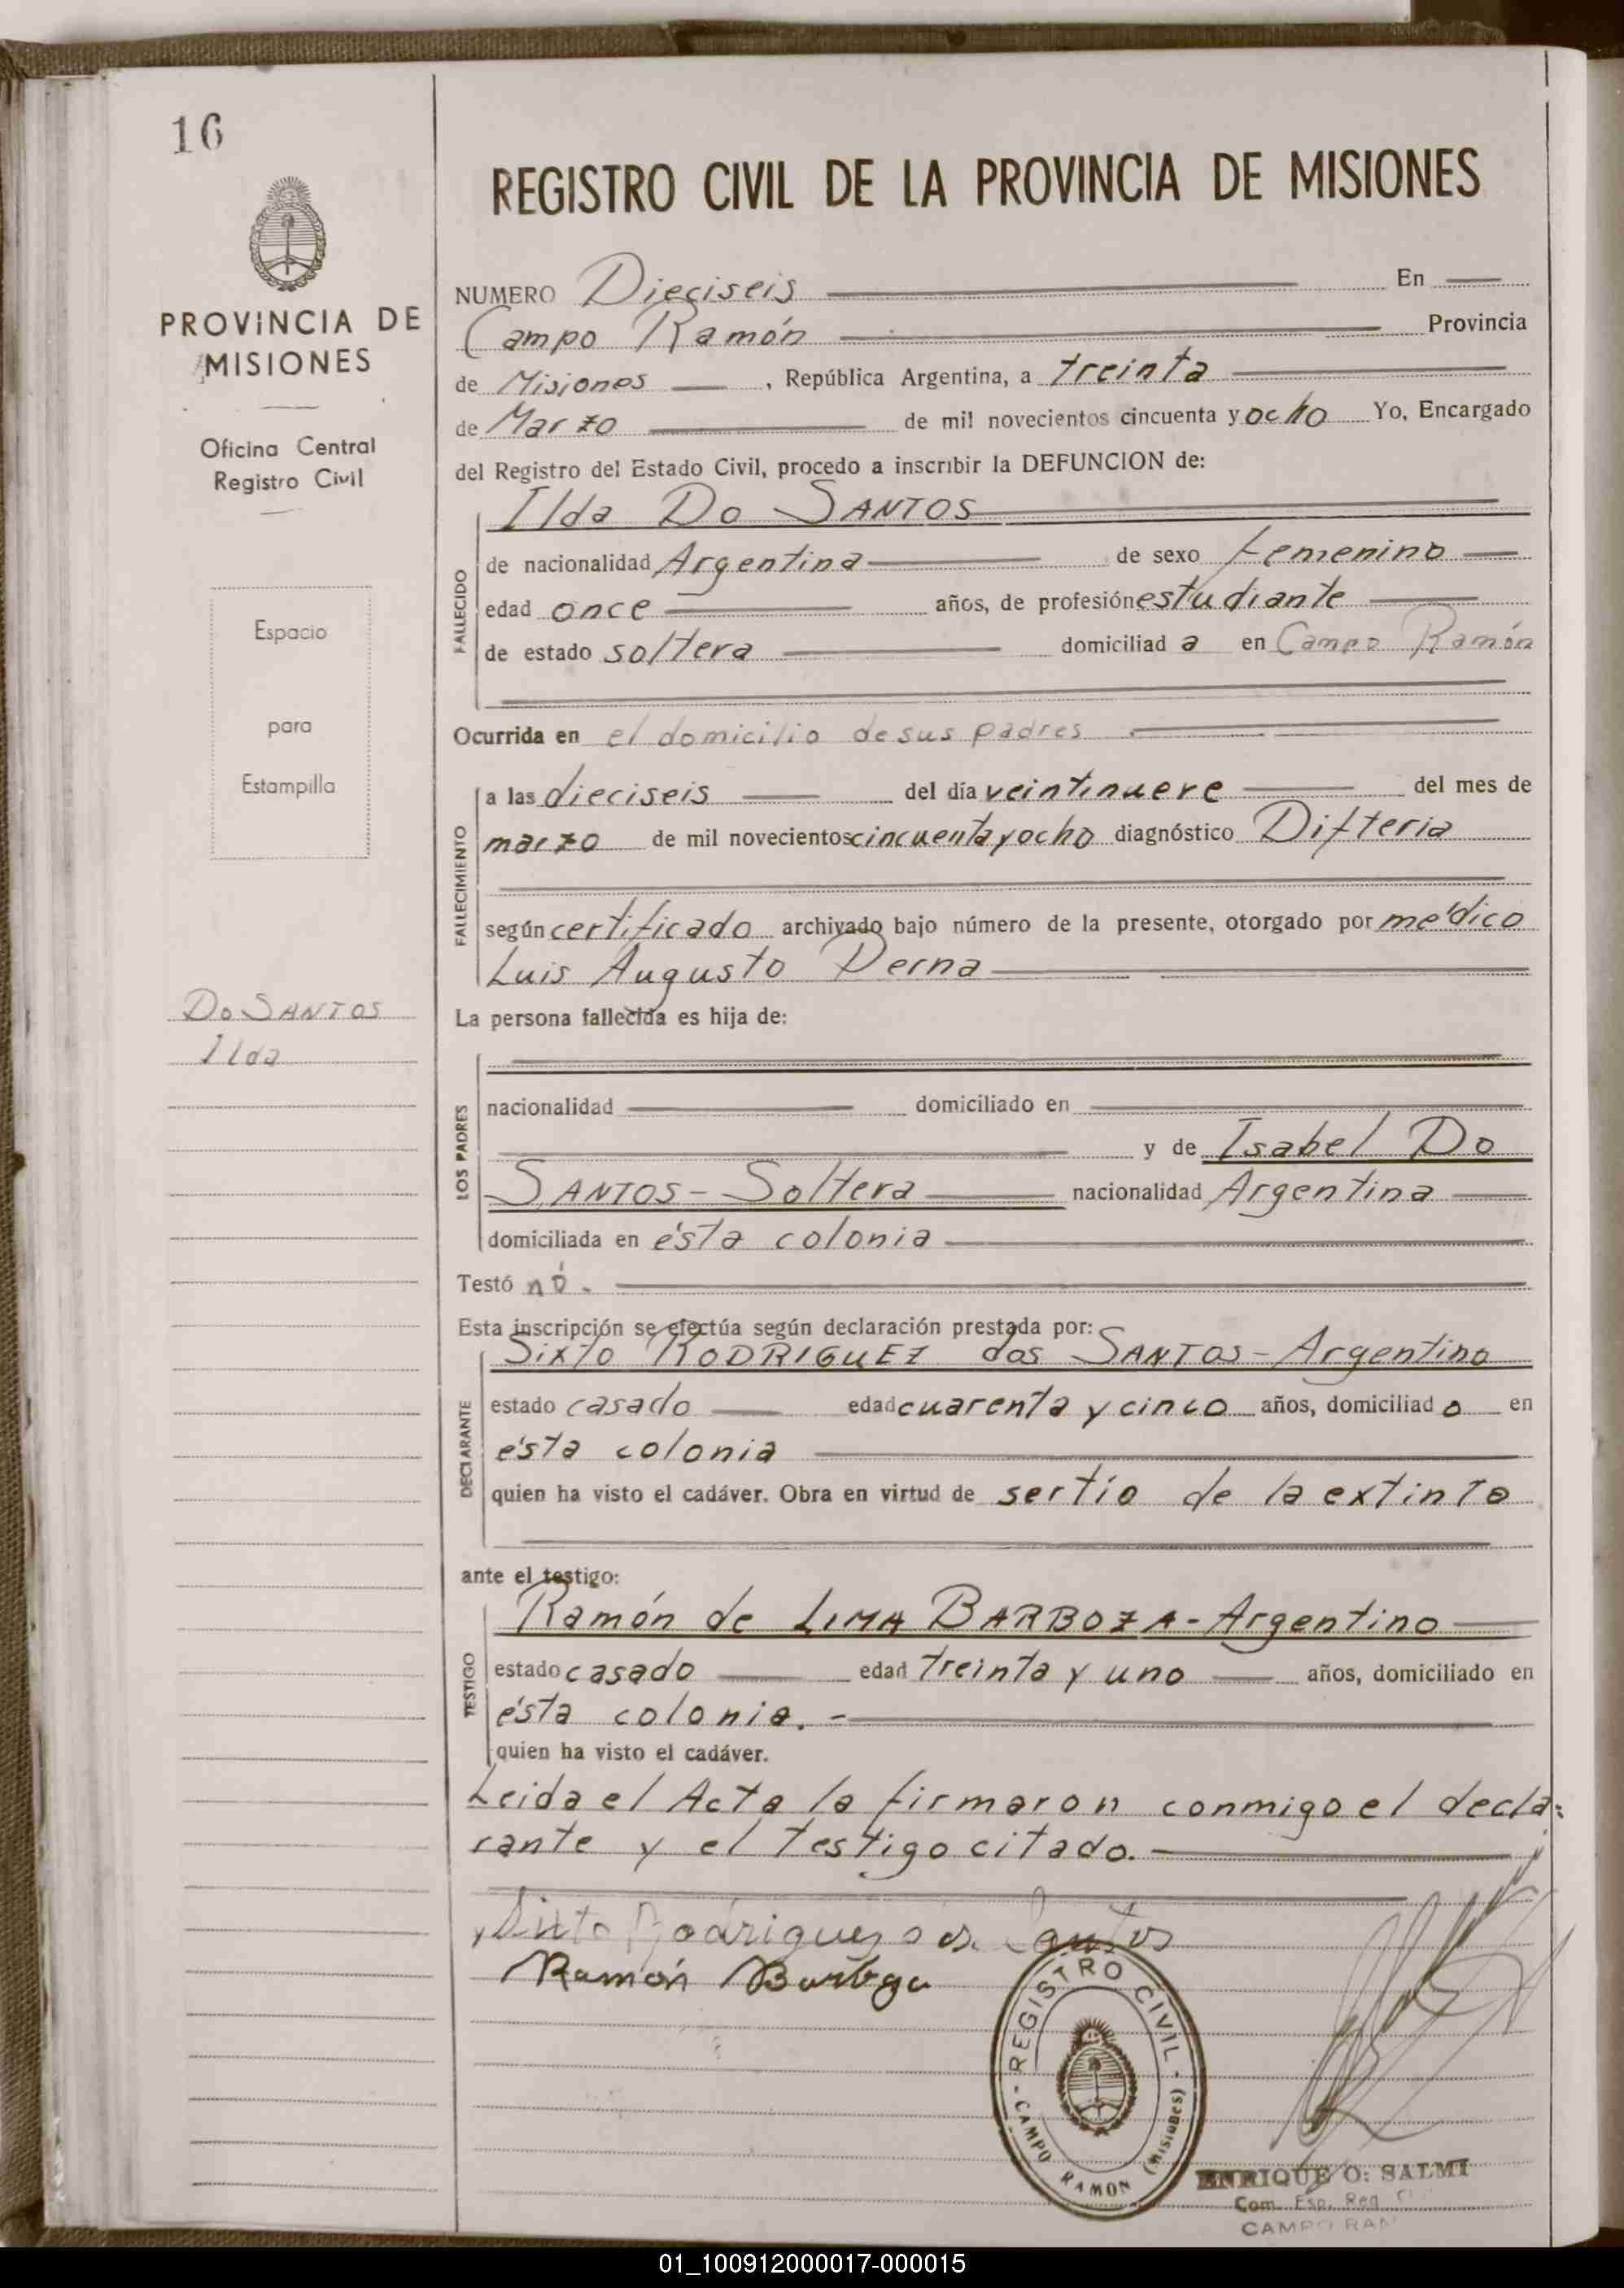 16
PROVINCIA DE
MISIONES
Oficina Central
Registro Civil
Espacio
para
Estampilla
Do SANTOS
Ilda
REGISTRO CIVIL DE LA PROVINCIA DE MISIONES
NUMERO Dieciseis En
Campo Ramón Provincia
de Misiones , República Argentina, a treinta
de Marzo de mil novecientos cincuenta y ocho Yo, Encargado
del Registro del Estado Civil, procedo a inscribir la DEFUNCION de:
Ilda Do SANTOS
FALLECIDO
de nacionalidad Argentina de sexo femenino
edad once años, de profesión estudiante
de estado soltera domiciliad a en Campo Ramón
Ocurrida en el domicilio de sus padres
FALLECIMIENTO
a las dieciseis del día veintinueve del mes de
marzo de mil novecientos cincuenta y ocho diagnóstico Difteria
según certificado archivado bajo número de la presente, otorgado por médico
Luis Augusto Derna
La persona fallecida es hija de:
LOS PADRES
nacionalidad domiciliado en
y de Isabel Do
SANTOS - Soltera nacionalidad Argentina
domiciliada en ésta colonia
Testó nó.
Esta inscripción se efectúa según declaración prestada por:
DECLARANTE
Sixto RODRIGUEZ dos SANTOS - Argentino
estado casado edad cuarenta y cinco años, domiciliad o en
ésta colonia
quien ha visto el cadáver. Obra en virtud de ser tío de la extinta
ante el testigo:
TESTIGO
Ramón de LIMA BARBOZA - Argentino
estado casado edad treinta y uno años, domiciliado en
ésta colonia. -
quien ha visto el cadáver.
Leida el Acta la firmaron conmigo el decla-
rante y el testigo citado.
Sixto Rodriguez dos Santos
Ramón
REGISTRO CIVIL
CAMPO RAMON (Misiones)
ENRIQUE O: SALMI
Com. Esp. Reg.
CAMPO RAM
01_100912000017-000015